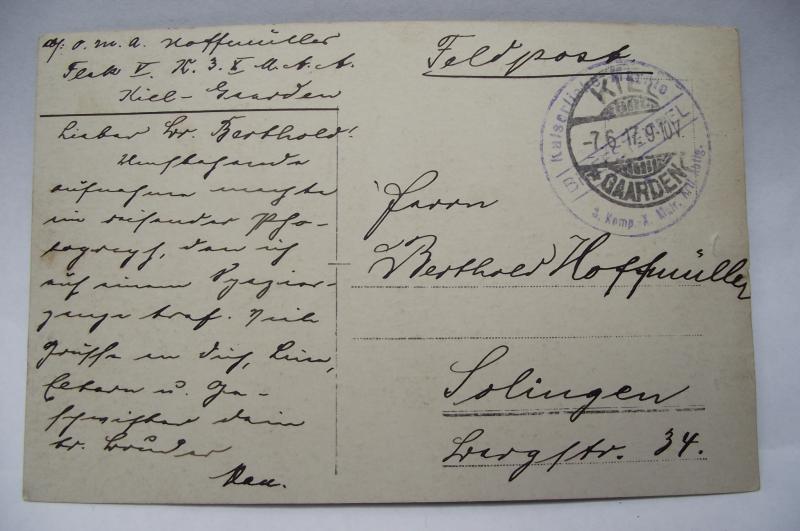 O. M. A. Hoffmüller
Flak V. K. 3. X M. A. A.
Kiel-Gaarden
Lieber Br. Berthold!
Umstehende
aufnahme machte
ein reisender Pho-
tograph, den ich
auf einem Spazier-
gange traf. Viele
Grüsse an dich,
Eltern u. Ge-
schwister dein
tr. Bruder
Feldpost
KIEL
-7.6.17.9-10V.
GAARDEN
Kaiserliche Marine
3. Komp. X. Matr. Art. Abtlg.
Herrn
Berthold Hoffmüller
Solingen
Bergstr. 34.